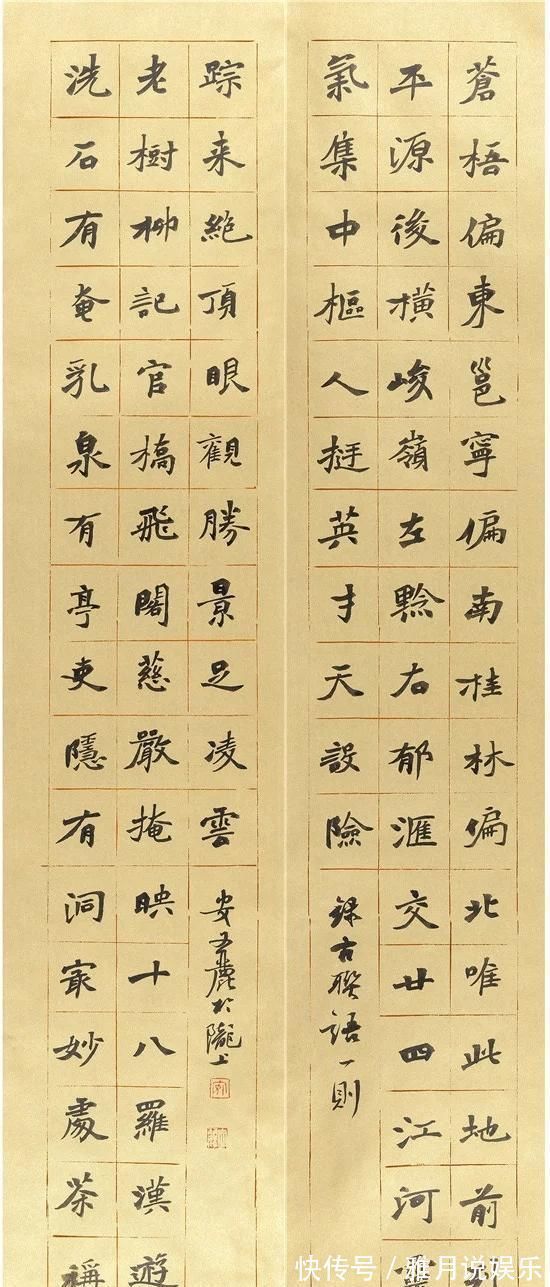 蒼梧偏東邕寧偏南桂林偏北唯此地前
平源後橫峻嶺左黔右郁滙交廿四江河
氣集中樞人挺英才天設險
録古聯語一則
洗石有奄乳泉有亭吏隱有洞最妙處茶稱
老樹柳記官橋飛閣慈嚴掩映十八羅漢遊
踪来絶頂眼觀勝景足凌雲
安文麗於隴上
快传号/雅月说娱乐